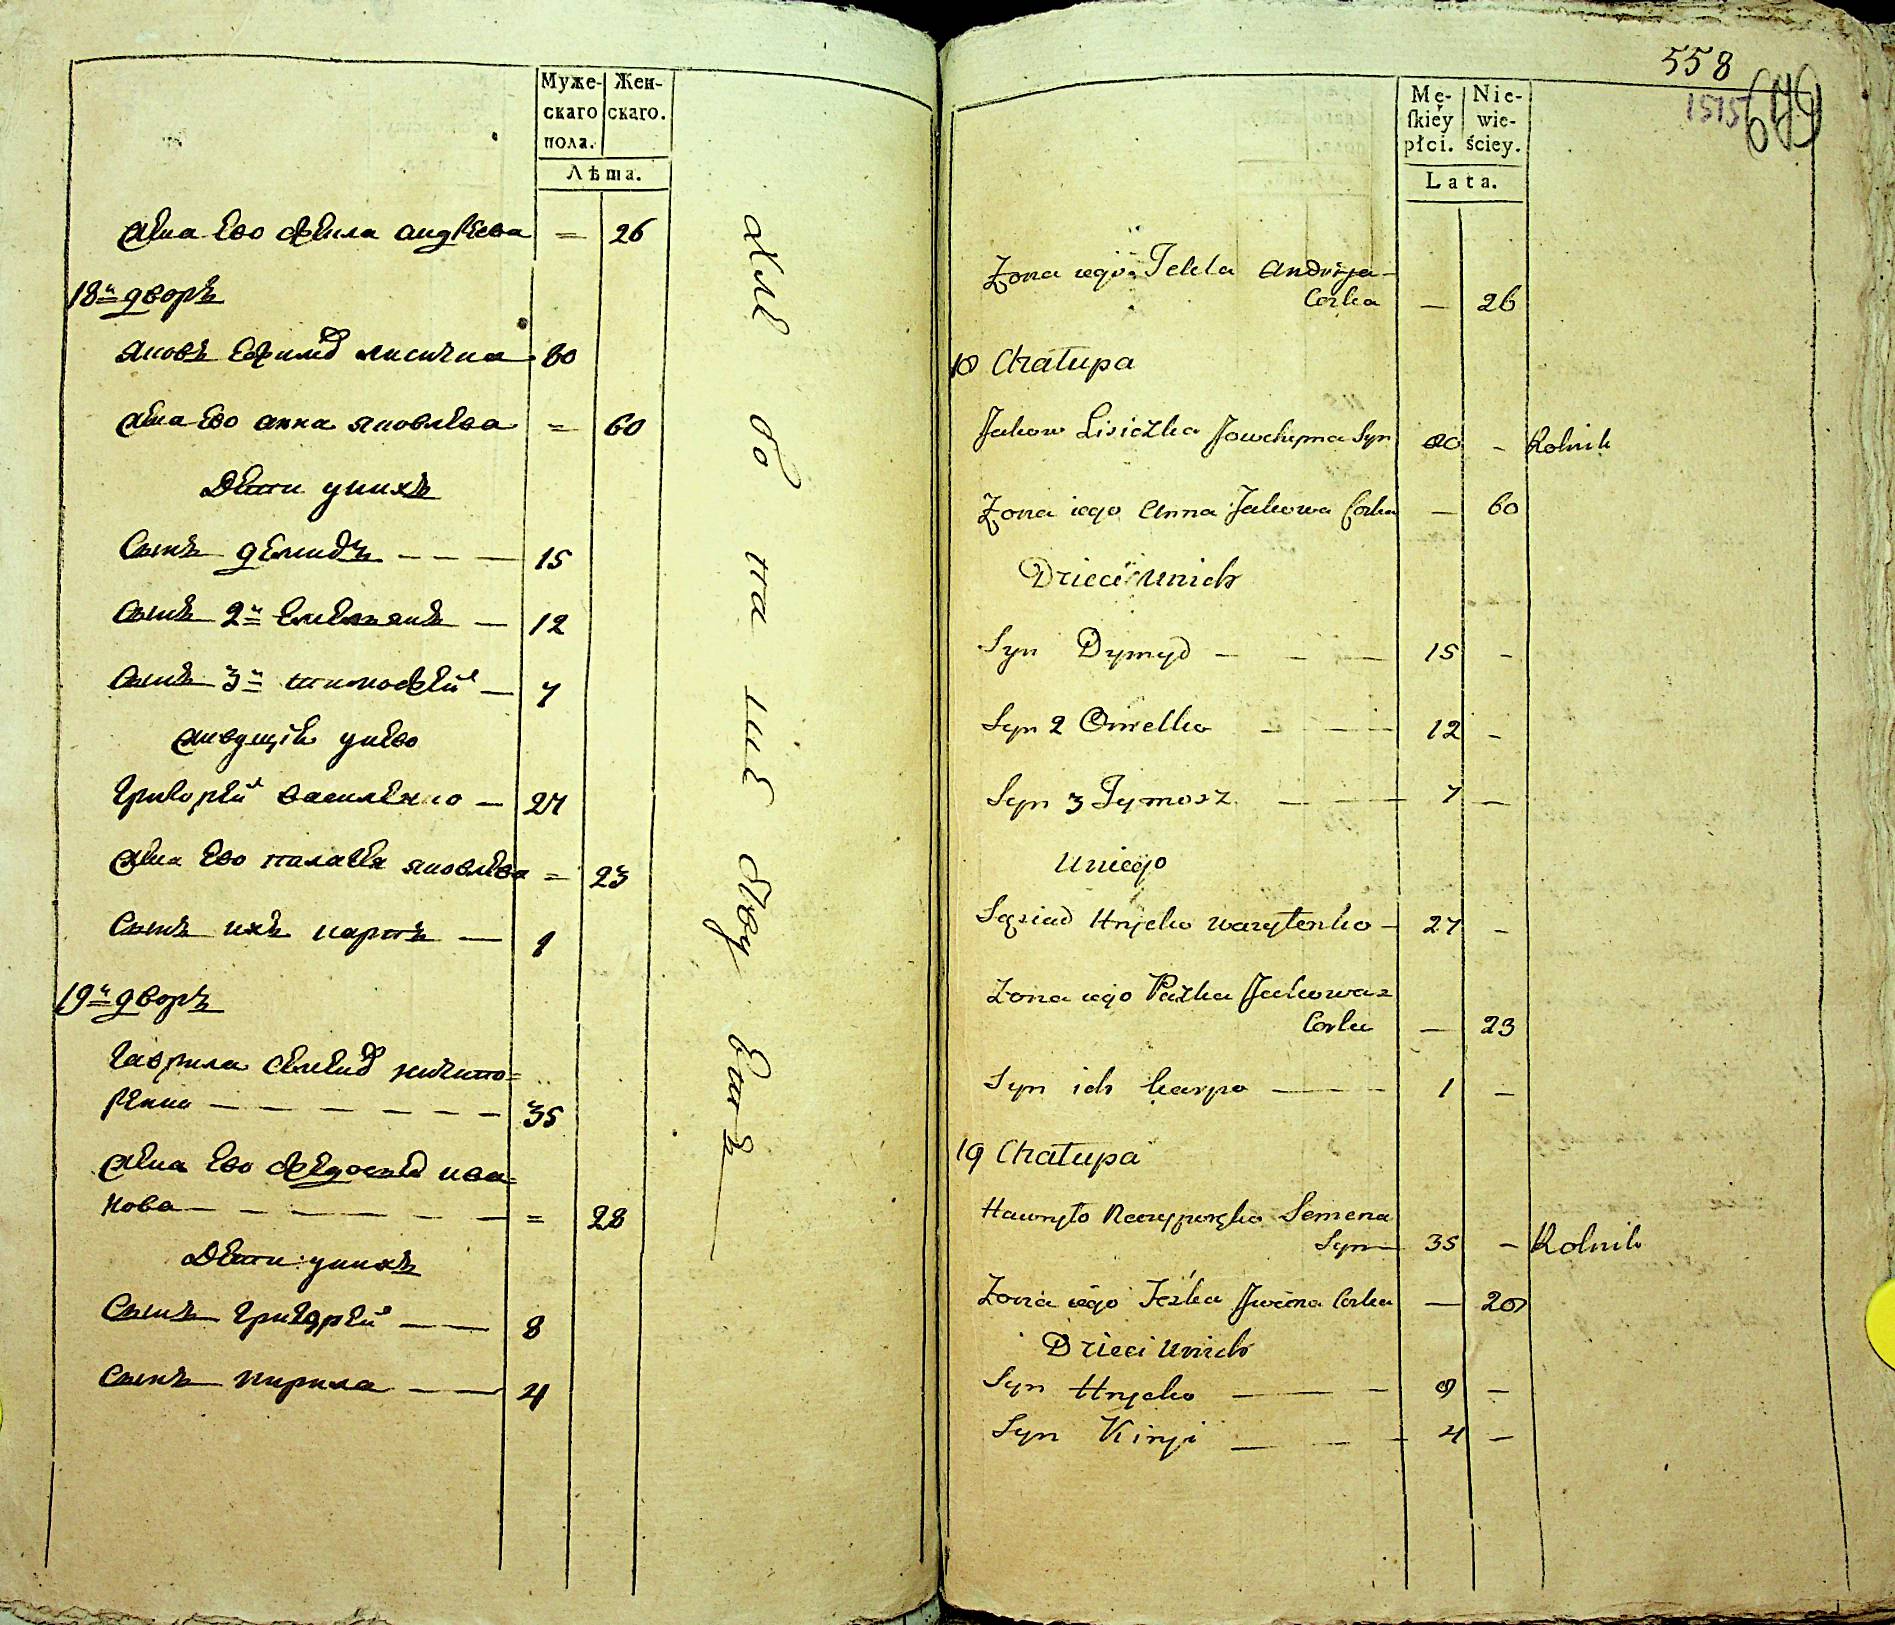 Муже-
скаго
пола.
Жен-
скаго.
Лѣта.
жена ево фекла андреева = 26
18й дворъ
яковъ ефимов лисичка 60
жена ево анна яковлева = 60
Дети у нихъ
Сынъ демидъ — — — 15
Сынъ 2й емельянъ — 12
Сынъ 3й тимофей — 7
живущие у него
григорей василенко — 27
жена ево палагея яковлева = 23
Сынъ ихъ карпъ — 1
19й дворъ
гаврила семенов ничипо=
ренко — — — — — — 35
жена ево федосья ива=
нова — — — — — — = 28
Дети у нихъ
Сынъ григорей — — 8
Сынъ кирила — — 4
558
1515
699
Mę-
ſkiey
płci.
Nie-
wie-
ściey.
Lata.
Zona iego Tekla Andrija
Corka — 26
18 Chałupa
Jakow Lisiczka Jowchyma Syn 60 - Rolnik
Zona iego Anna Jakowa Corka — 60
Dzieci unich
Syn Dymyd — — — 15 -
Syn 2 Omelko — — — 12 -
Syn 3 Tymosz — — — 7 —
Uniego
Sąsiad Hryćko Wasylenko — 27 -
Zona iego Paźka Jakowa
Corka — 23
Syn ich Karpo — — — 1 —
19 Chałupa
Hawryło Neczyporęko Semena
Syn — 35 — Rolnik
Zona iego Iwana Corka — 28
Dzieci Unich
Syn Hryćko — — — 8 —
Syn Kiryi — — — 4 —